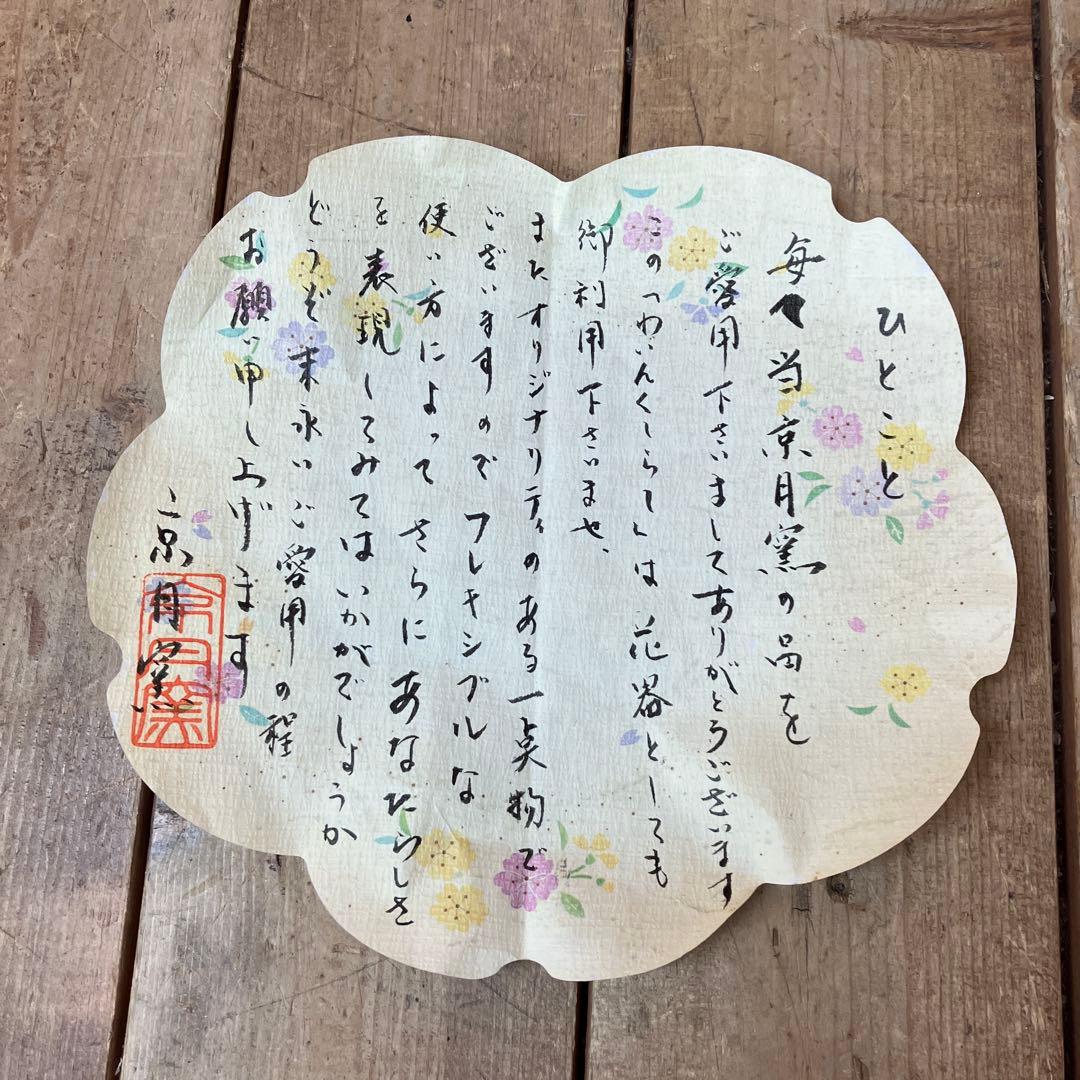 ひとこと
毎々当京月窯の品を
ご愛用下さいましてありがとうございます
この「わいんくうらー」は花器としても
御利用下さいませ、
またオリジナリティのある一点物で
ございますのでフレキシブルな
使い方によってさらにあなたらしさ
を表現してみてはいかがでしょうか
どうぞ末永いご愛用の程
お願い申し上げます
京月窯